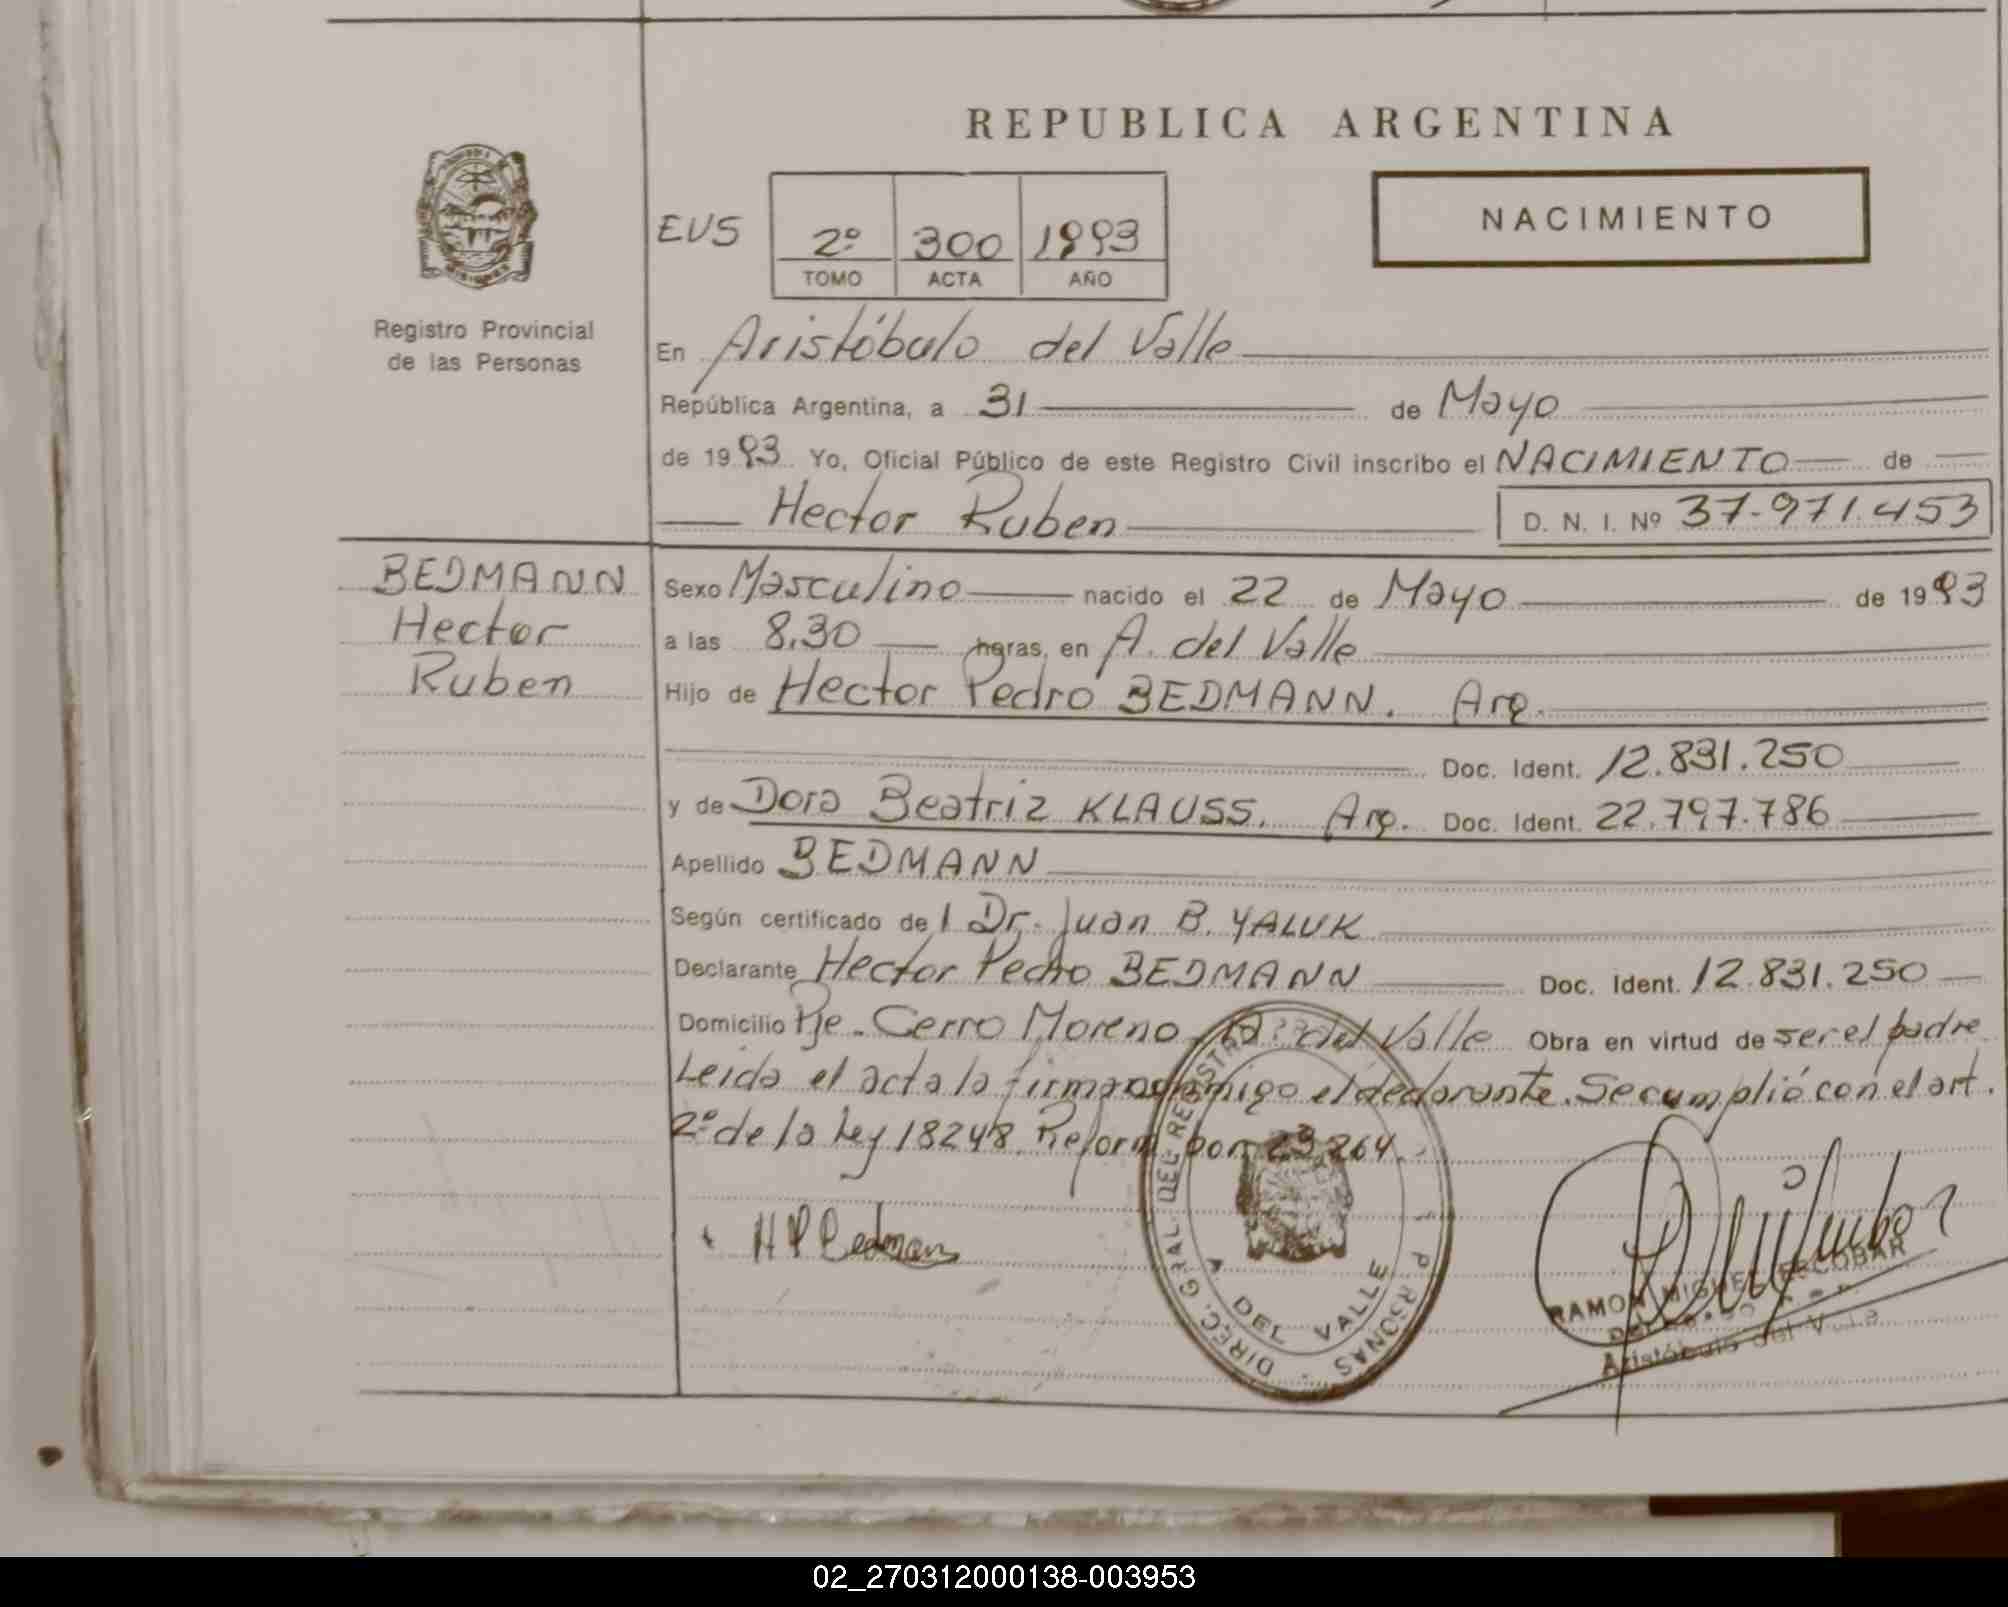 REPUBLICA ARGENTINA
NACIMIENTO
EUS 2º 300 1993
TOMO ACTA AÑO
Registro Provincial
de las Personas
En Aristóbulo del Valle
República Argentina, a 31 de Mayo
de 1993 Yo, Oficial Público de este Registro Civil inscribo el NACIMIENTO de
Hector Ruben D. N. I. Nº 37.971.453
BEDMANN
Hector
Ruben
Sexo Masculino nacido el 22 de Mayo de 1993
a las 8,30 horas, en A. del Valle
Hijo de Hector Pedro BEDMANN. Arg.
Doc. Ident. 12.831.250
y de Dora Beatriz KLAUSS. Arg. Doc. Ident. 22.797.786
Apellido BEDMANN
Según certificado del Dr. Juan B. YALUK
Declarante Hector Pedro BEDMANN Doc. Ident. 12.831.250
Domicilio Pje. Cerro Moreno, A? del Valle Obra en virtud de ser el padre
Leida el acta la firma conmigo el declarante. Se cumplió con el art.
2º de la Ley 18248. Reform por 23264.
H P Bedman
DIREC. GRAL DEL REGISTRO PERSONAS
A DEL VALLE
RAMON MIGUEL ESCOBAR
Aristóbulo del Valle
02_270312000138-003953